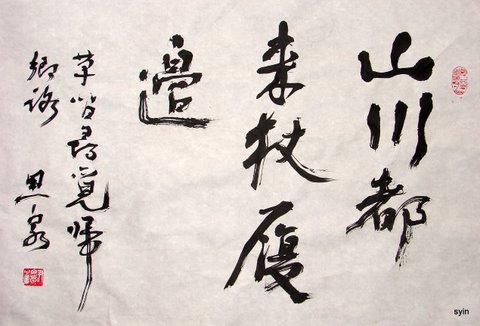 山川都
来杖履
邊
草尋覓歸
鄉路 思泉
syin